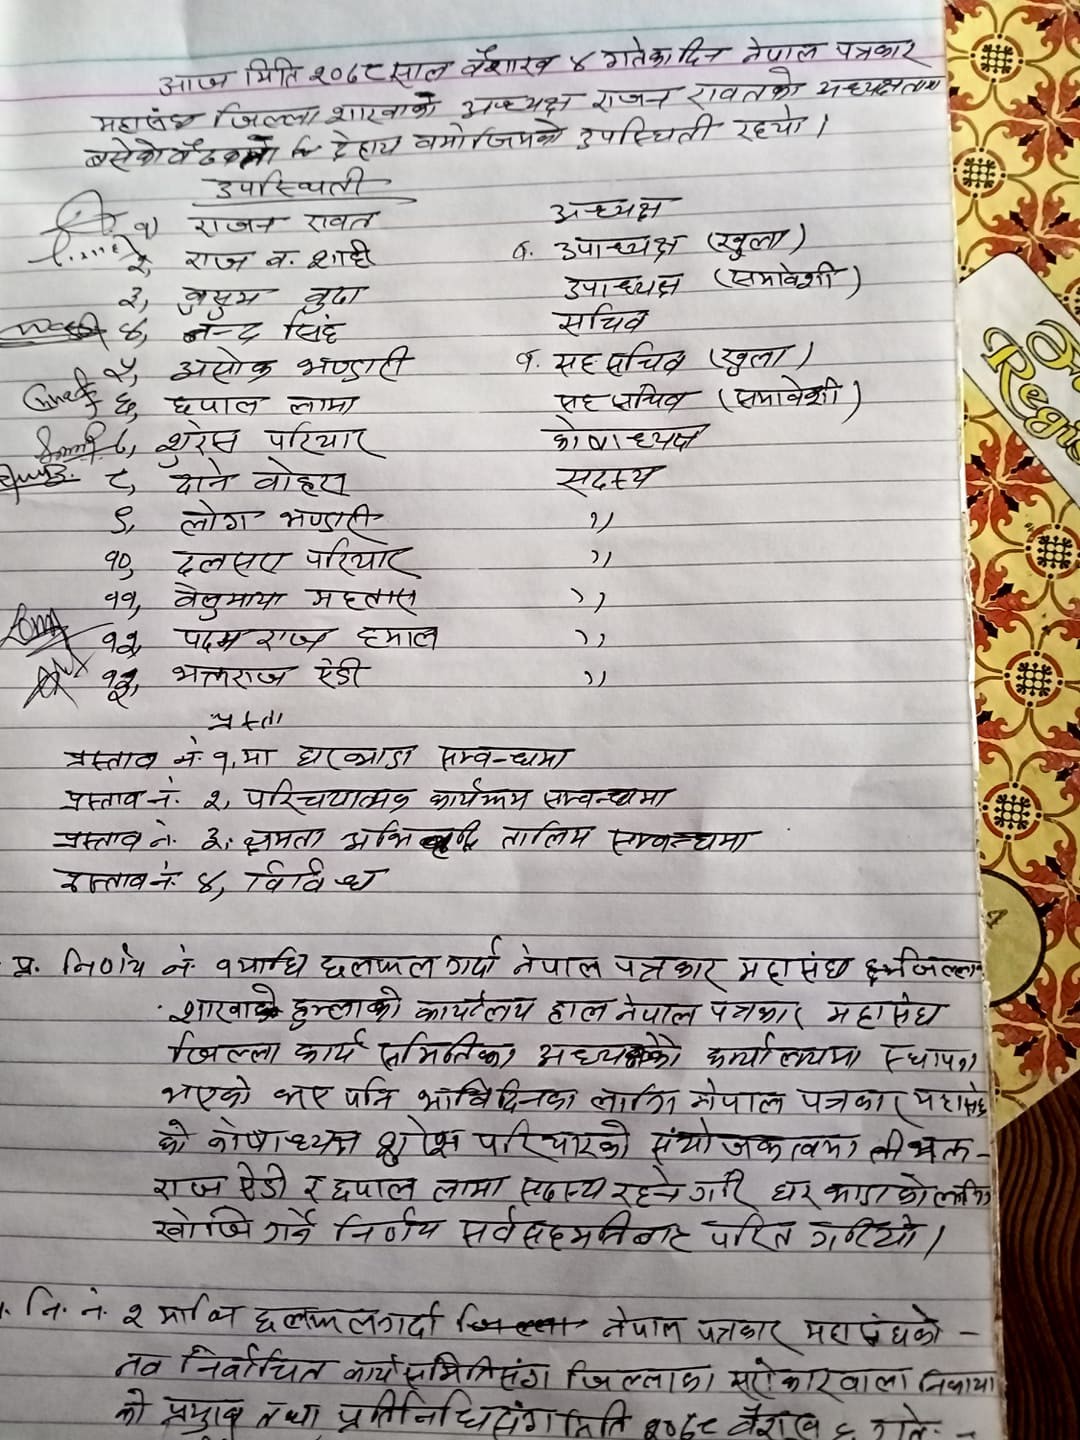 आज मिति २०७८ साल वैशाख ४ गतेका दिन नेपाल पत्रकार
महासंघ जिल्ला शाखाको अध्यक्ष राजन रावतको अध्यक्षतामा
बसेको बैठकमा देहाय वमोजिमको उपस्थिती रहयो।
उपस्थिती
१) राजन रावत अध्यक्ष
२, राज ब. शाही ब. उपाध्यक्ष (खुला)
३, कुसुम बुढा उपाध्यक्ष (समावेशी)
४, नन्द सिंह सचिव
५, असोक भण्डारी ब. सह सचिव (खुला)
६, छपाल लामा सह सचिव (समावेशी)
७, शुरेस परियार कोषाध्यक्ष
८, दाने वोहरा सदस्य
९, लोग भण्डारी ,,
१०, दलसए परियार ,,
११, वेलुमाया महतारा ,,
१२, पदम राज हमाल ,,
१३, भक्तराज ऐडी ,,
प्रस्ता
प्रस्ताव नं. १, मा घरभाडा सम्वन्धमा
प्रस्ताव नं. २, परिचयात्मक कार्यक्रम सम्वन्धमा
प्रस्ताव नं. ३, क्षमता अभिवृद्धि तालिम सम्वन्धमा
प्रस्ताव नं. ४, विविध
प्र. निर्णय नं. १ माथि छलफल गर्दा नेपाल पत्रकार महासंघ जिल्ला
शाखा हुम्लाको कार्यालय हाल नेपाल पत्रकार महासंघ
जिल्ला कार्य समितिका अध्यक्षको कार्यालयमा स्थापना
भएको भए पनि भाविदिनका लागि नेपाल पत्रकार महासंघ
को कोषाध्यक्ष शुरेस परियारको संयोजकत्वमा भक्त-
राज ऐडी र छपाल लामा सदस्य रहने गरि घर भाडाको लागि
खोजि गर्ने निर्णय सर्वसहमतिबाट परित गरियो।
नि. नं. २ माथि छलफल गर्दा नेपाल पत्रकार महासंघको -
नव निर्वाचित कार्यसमितिसंग जिल्लाका सरोकारवाला निकाय
को प्रमुख तथा प्रतिनिधिसंग मिति २०७८ वैशाख ६ गते -